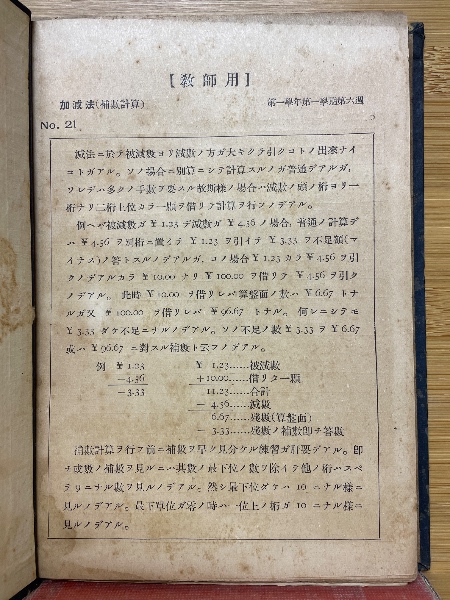 【教師用】
加減法(補數計算) 第一學年第一學期第六週
No. 21
減法ニ於テ被減數ヨリ減數ノ方ガ大キクテ引クコトノ出來ナイ
コトガアル。ソノ場合ニ別算ニシテ計算スルノガ普通デアルガ、
ソレデハ多クノ手數ヲ要スル故斯樣ノ場合ハ減數ノ頭ノ桁ヨリ一
桁ナリ二桁上位カラ一顆ヲ借リテ計算ヲ行フノデアル。
例ヘバ被減數ガ ¥ 1.23 デ減數ガ ¥ 4.56 ノ場合、普通ノ計算デ
ハ ¥ 4.56 ヲ別桁ニ置イテ ¥ 1.23 ヲ引イテ ¥ 3.33 ヲ不足額(マ
イナス)ノ答トスルノデアルガ、コノ場合 ¥ 1.23 カラ ¥ 4.56 ヲ引
クノデアルカラ ¥ 10.00 ナリ ¥ 100.00 ヲ借リテ ¥ 4.56 ヲ引ク
ノデアル。此時 ¥ 10.00 ヲ借リレバ算盤面ノ數ハ ¥ 6.67 トナ
ルガ又 ¥ 100.00 ヲ借リレバ ¥ 96.67 トナル。何レニシテモ
¥ 3.33 ダケ不足ニナルノデアル。ソノ不足ノ數 ¥ 3.33 ヲ ¥ 6.67
或ハ ¥ 96.67 ニ對スル補數ト云フノデアル。
例 ¥ 1.23 ¥ 1.23……被減數
－4.56 ＋10.00……借リタ一顆
－3.33 11.23……合計
－ 4.56……減數
6.67……殘數(算盤面)
－ 3.33……殘數ノ補數即チ答數
補數計算ヲ行フ前ニ補數ヲ早ク見分ケル練習ガ肝要デアル。即
チ或數ノ補數ヲ見ルニハ其數ノ最下位ノ數ヲ除イテ他ノ桁ハスベ
テ 9 ニナル數ヲ見ルノデアル。然シ最下位ダケハ 10 ニナル樣ニ
見ルノデアル。最下單位ガ零ノ時ハ一位上ノ桁ガ 10 ニナル樣ニ
見ルノデアル。